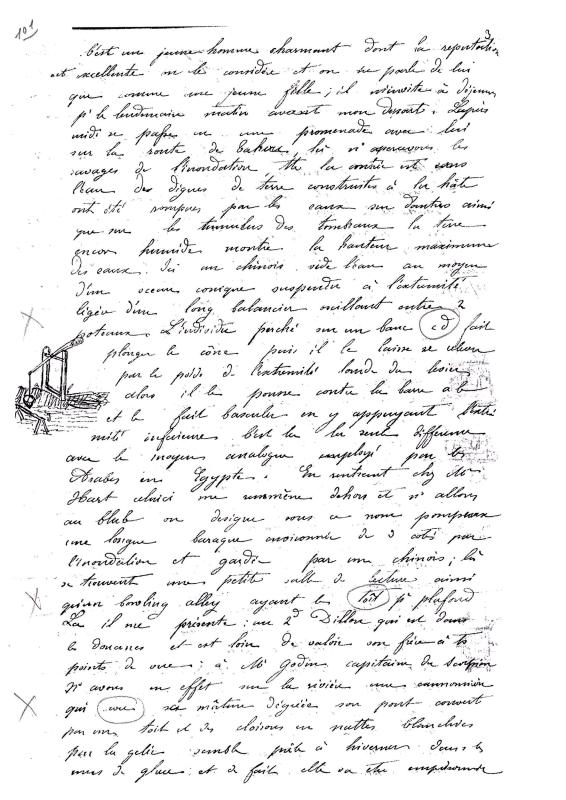 101
3
C'est un jeune homme charmant dont la reputation
est excellente on le considère et on ne parle de lui
que comme une jeune fille ; il m'invite à déjeuner
pr le lendemain matin avant mon départ. L'après
midi se passe en une promenade avec lui
sur la route de Takou, là ns apercevons les
ravages de l'inondation Tte la contrée est sous
l'eau des digues de terre construites à la hâte
ont été rompues par les eaux sur d'autres ainsi
que sur les tumulus des tombeaux la terre
encor humide montre la hauteur maximum
des eaux. Ici un chinois vide l'eau au moyen
d'un seau conique suspendu à l'extrémité
d'un long balancier oscillant entre 2
poteaux. L'individu perché sur un banc cd fait
plonger le cône puis il le laisse se relever
par le poids de l'extrémité lourde du levier
alors il le pousse contre la barre a b
et le fait basculer en y appuyant l'extré
mité inférieure C'est là la seule différence
avec le moyen analogue employé par les
Arabes en Egypte. En rentrant chez Mr
Hart celui ci me remmène dehors et ns allons
au Club on designe sous ce nom pompeux
une longue baraque environnée de 3 cotés par
l'inondation et gardée par un chinois ; là
se trouvent une petite salle de lecture ainsi
qu'un bowling alley ayant le toit pr plafond
Là il me présente : au 2d Dillon qui est dans
les douanes et est loin de valoir son frère à ts
points de vue ; à Mr Godin capitaine du Scorpion
Ns avons en effet sur la rivière une cannonière
qui avec sa mâture dégréée son pont couvert
par un toit et des cloisons en nattes blanchies
par la gelée semble prête à hiverner dans les
mers de glace et de fait elle va être emprisonnée